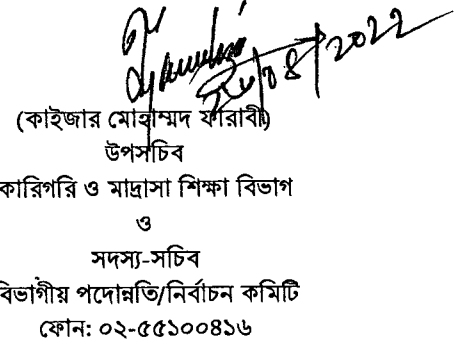 (কাইজার মোহাম্মদ ফারাবী)
উপসচিব
কারিগরি ও মাদ্রাসা শিক্ষা বিভাগ
ও
সদস্য-সচিব
বিভাগীয় পদোন্নতি/নির্বাচন কমিটি
ফোন: ০২-৫৫১০০৪১৬